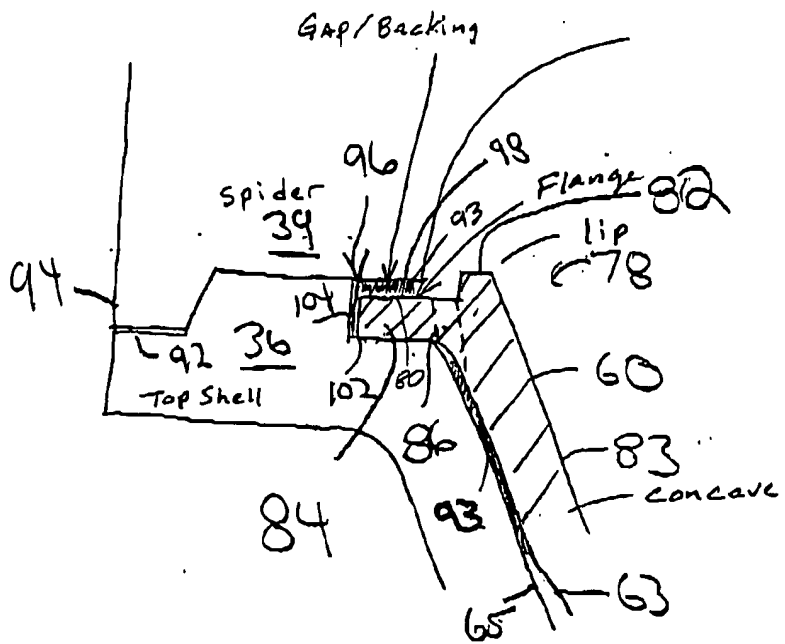 GAP/Backing
96
98
spider
39
Flange
82
93
lip
78
94
104
92
36
Top Shell
102
80
60
86
83
93
concave
84
63
65